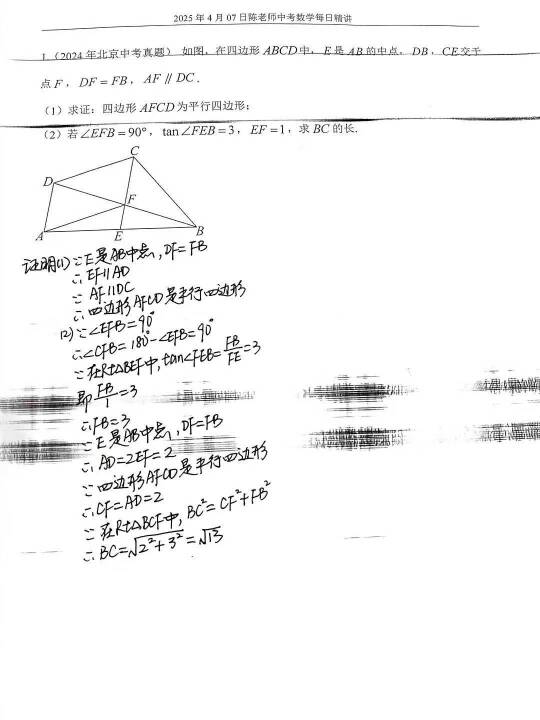 2025年4月07日陈老师中考数学每日精讲
1.（2024年北京中考真题） 如图，在四边形ABCD中，E是AB的中点，DB，CE交于
点F，DF=FB，AF∥DC．
（1）求证：四边形AFCD为平行四边形；
（2）若∠EFB=90°，tan∠FEB=3，EF=1，求BC的长．
C
D
F
A
E
B
证明(1)∵E是AB中点，DF=FB
∴EF∥AD
∵AF∥DC
∴四边形AFCD是平行四边形
(2)∵∠EFB=90°
∴∠CFB=180°-∠EFB=90°
∵在Rt△BEF中，tan∠FEB=FB/FE=3
即FB/1=3
∴FB=3
∵E是AB中点，DF=FB
∴AD=2EF=2
∵四边形AFCD是平行四边形
∴CF=AD=2
∵在Rt△BCF中，BC²=CF²+FB²
∴BC=√2²+3²=√13